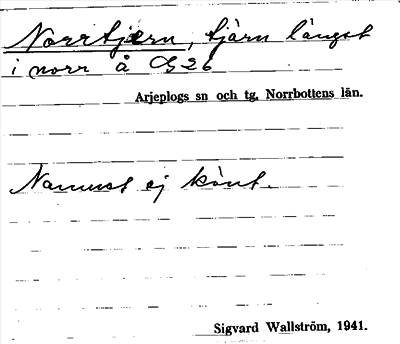 Norrtjern, tjärn längst
i norr å G26
Arjeplogs sn och tg, Norrbottens län.
Namnet ej känt.
Sigvard Wallström, 1941.